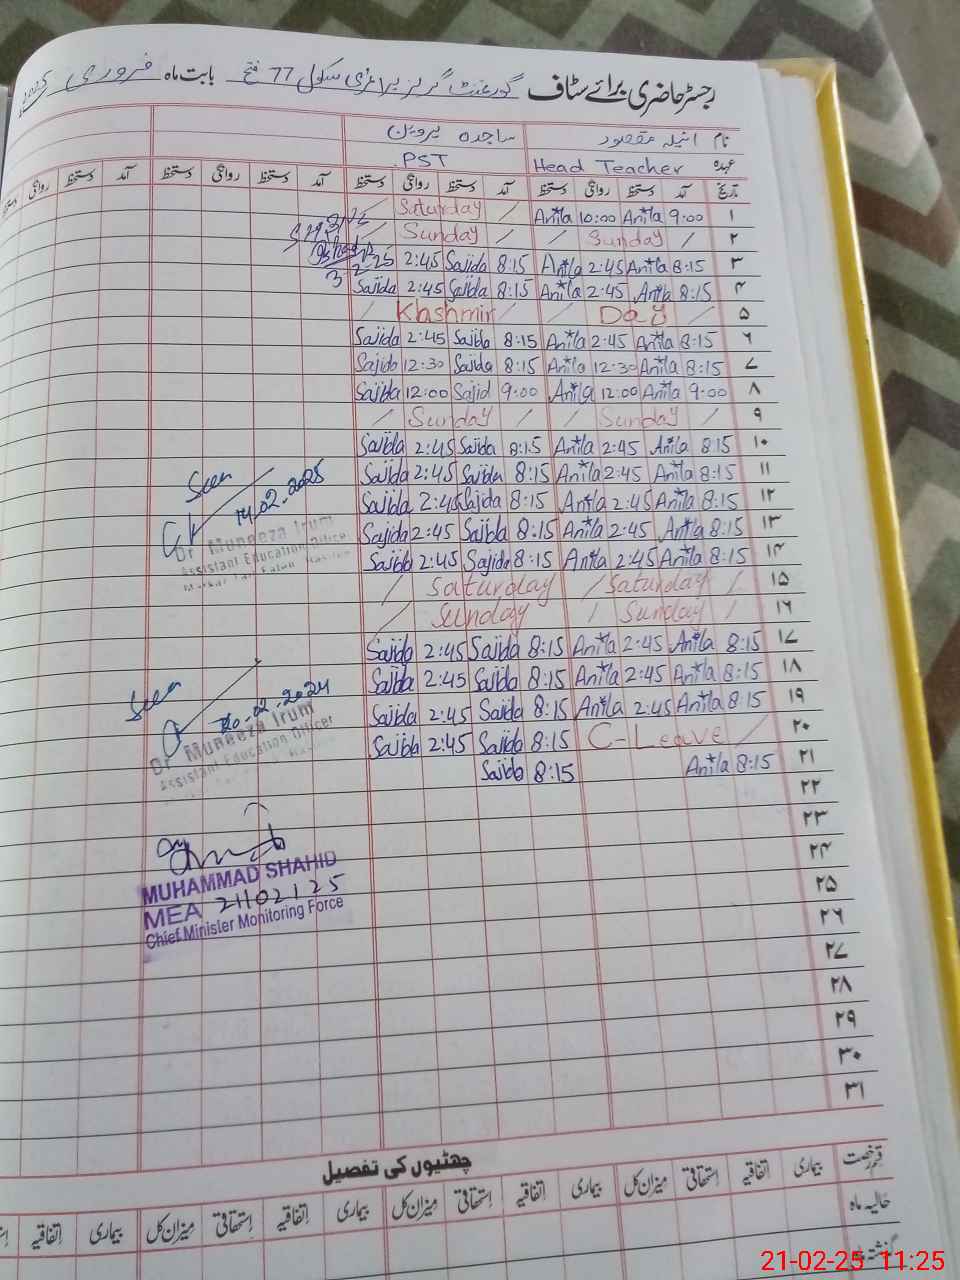 رجسٹر حاضری برائے سٹاف گورنمنٹ گرلز پرائمری سکول 77 فتح بابت ماہ فروری 2025
نام انیلہ مقصود ساجدہ پروین
عہدہ Head Teacher PST
تاریخ آمد دستخط روانگی دستخط آمد دستخط روانگی دستخط آمد دستخط روانگی دستخط آمد دستخط روانگی دستخط
۱ 9:00 Anila 10:00 Anila / Saturday /
۲ / Sunday / / Sunday /
۳ 8:15 Anila 2:45 Anila 8:15 Sajida 2:45
3-2-25
۴ 8:15 Anila 2:45 Anila 8:15 Sajida 2:45 Sajida
۵ / Kashmir / / Day /
۶ 8:15 Anila 2:45 Anila 8:15 Sajida 2:45 Sajida
۷ 8:15 Anila 12:30 Anila 8:15 Sajida 12:30 Sajida
۸ 9:00 Anila 12:00 Anila 9:00 Sajid 12:00 Sajida
۹ / Sunday / / Sunday /
۱۰ 8:15 Anila 2:45 Anila 8:15 Sajida 2:45 Sajida
۱۱ 8:15 Anila 2:45 Anila 8:15 Sajida 2:45 Sajida
۱۲ 8:15 Anila 2:45 Anila 8:15 Sajida 2:45 Sajida
۱۳ 8:15 Anila 2:45 Anila 8:15 Sajida 2:45 Sajida
۱۴ 8:15 Anila 2:45 Anila 8:15 Sajida 2:45 Sajida
۱۵ / Saturday / Saturday /
۱۶ / Sunday / Sunday /
۱۷ 8:15 Anila 2:45 Anila 8:15 Sajida 2:45 Sajida
۱۸ 8:15 Anila 2:45 Anila 8:15 Sajida 2:45 Sajida
۱۹ 8:15 Anila 2:45 Anila 8:15 Sajida 2:45 Sajida
۲۰ C-Leave / 8:15 Sajida 2:45 Sajida
۲۱ 8:15 Anila 8:15 Sajida
۲۲
۲۳
۲۴
۲۵
۲۶
۲۷
۲۸
۲۹
۳۰
۳۱
Seen
14.02.2025
Dr Muneeza Irum
Assistant Education Officer
Seen
20.02.2024
Dr Muneeza Irum
Assistant Education Officer
MUHAMMAD SHAHID
MEA 21/02/25
Chief Minister Monitoring Force
چھٹیوں کی تفصیل
قسم رخصت بیماری اتفاقیہ استحقاقی میزان کل بیماری اتفاقیہ استحقاقی میزان کل بیماری اتفاقیہ استحقاقی میزان کل بیماری اتفاقیہ
حالیہ ماہ
21-02-25 11:25